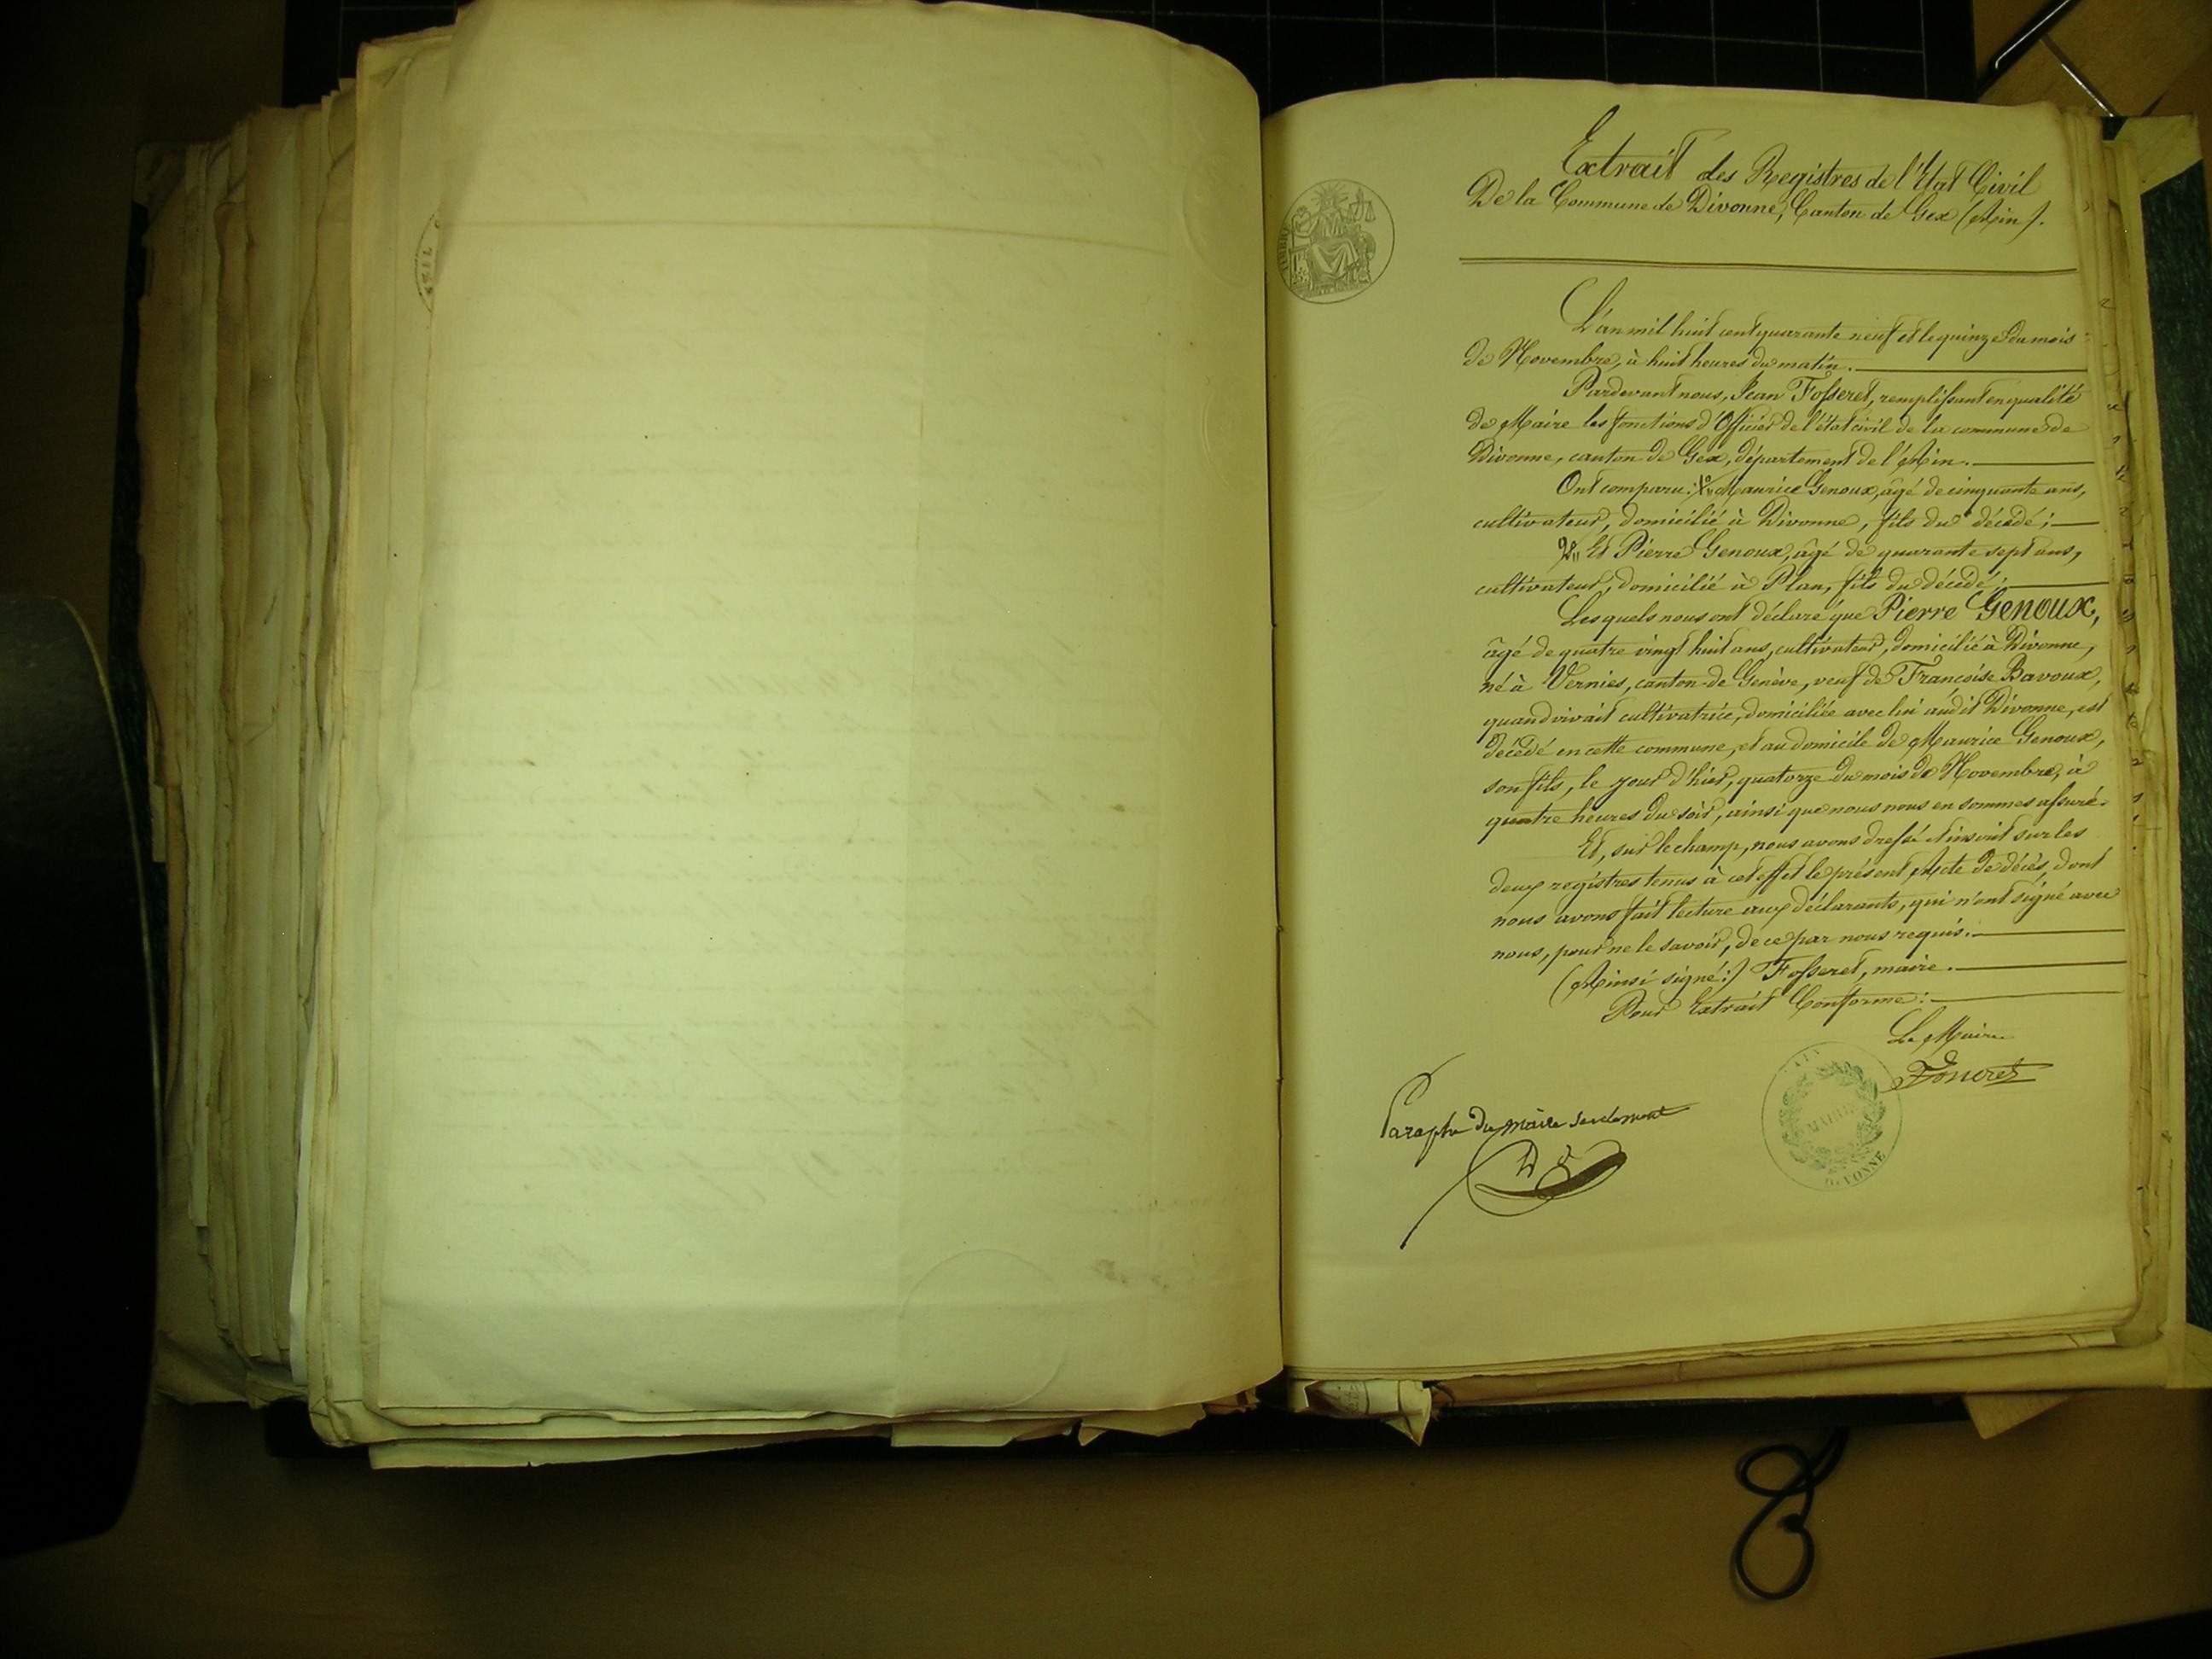 Extrait des Registres de l'Etat Civil
De la Commune de Divonne, Canton de Gex (Ain).
TIMBRE
L'an mil huit cent quarante neuf et le quinze du mois
de Novembre, à huit heures du matin.
Pardevant nous, Jean Fosseret, remplissant en qualité
de Maire les fonctions d'Officier de l'état civil de la commune de
Divonne, canton de Gex, département de l'Ain.
Ont comparu: 1º,, Maurice Genoux, âgé de cinquante ans,
cultivateur, domicilié à Divonne, fils du décédé;
2º,, Et Pierre Genoux, âgé de quarante sept ans,
cultivateur, domicilié à Plan, fils du décédé;
Lesquels nous ont déclaré que Pierre Genoux,
âgé de quatre vingt huit ans, cultivateur, domicilié à Divonne,
né à Vernies, canton de Genève, veuf de Françoise Bavoux,
quand vivait cultivatrice, domiciliée avec lui audit Divonne, est
décédé en cette commune, et au domicile de Maurice Genoux,
son fils, le jour d'hier, quatorze du mois de Novembre, à
quatre heures du soir, ainsi que nous nous en sommes assuré.
Et, sur le champ, nous avons dressé et inscrit sur les
deux registres tenus à cet effet le présent Acte de décès, dont
nous avons fait lecture aux déclarants, qui n'ont signé avec
nous, pour ne le savoir, de ce par nous requis.
(Ainsi signé:) Fosseret, maire.
Pour Extrait Conforme:
Le Maire
Fosseret
AIN
MAIRIE
DIVONNE
Paraphe du maire seulement